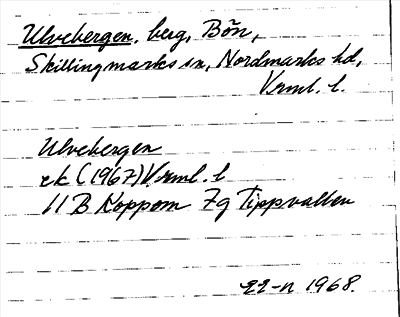 Ulvebergen, berg, Bön,
Skillingmarks sn, Nordmarks hd,
Vrml. l.
Ulvebergen
ek (1967) Vrml. l
11 B Koppom 7g Tippvallen
1968.